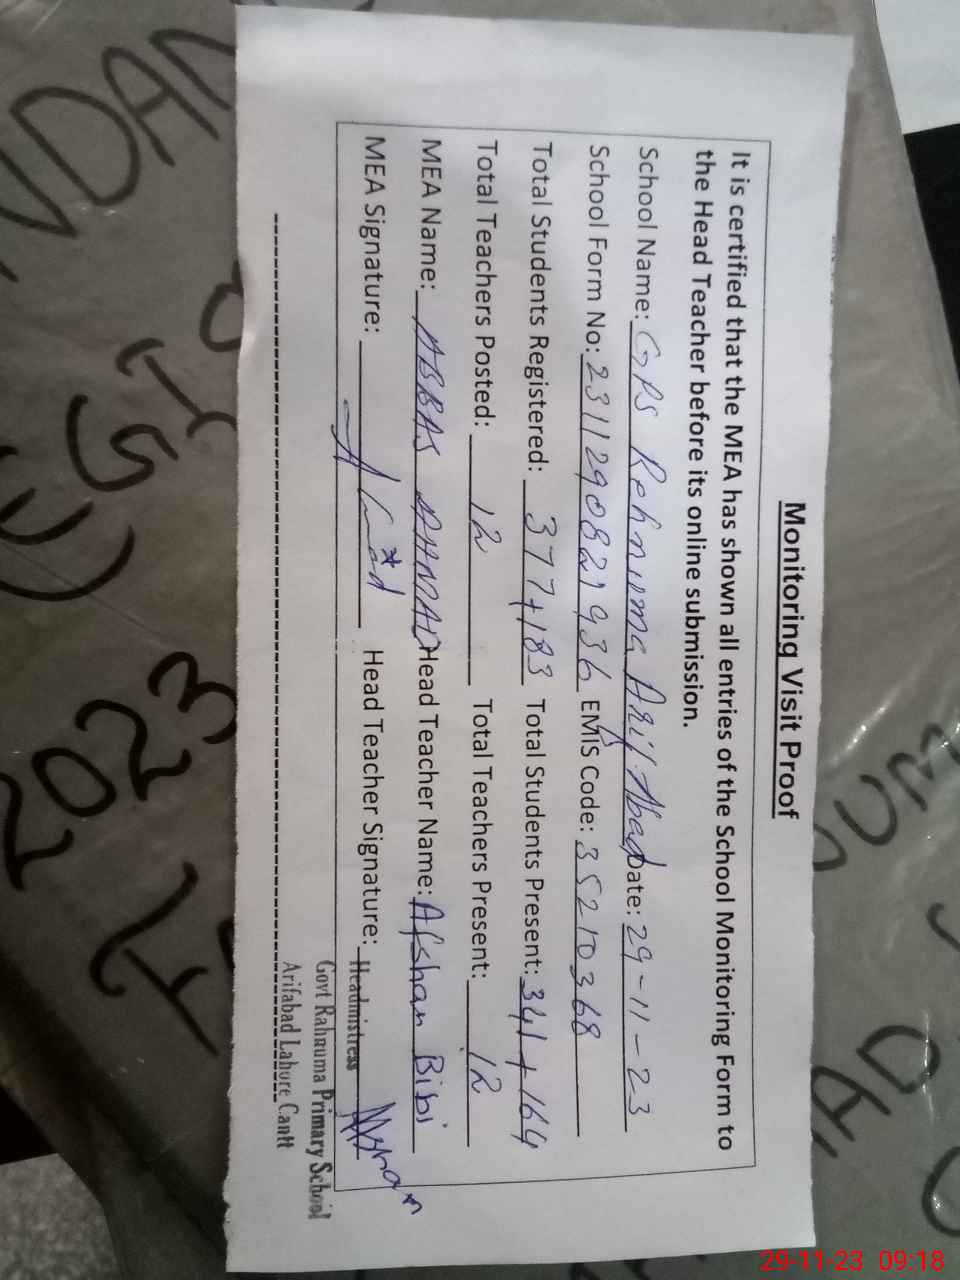 Monitoring Visit Proof
It is certified that the MEA has shown all entries of the School Monitoring Form to
the Head Teacher before its online submission.
School Name: GPS Rehnuma Arif Abad Date: 29-11-23
School Form No: 2311290821936 EMIS Code: 35210368
Total Students Registered: 377+183 Total Students Present: 341+164
Total Teachers Posted: 12 Total Teachers Present: 12
MEA Name: ABBAS AHMAD Head Teacher Name: Afshan Bibi
MEA Signature: Head Teacher Signature:
Headmistress
Govt Rahnuma Primary School
Arifabad Lahore Cantt
2023
29-11-23 09:18